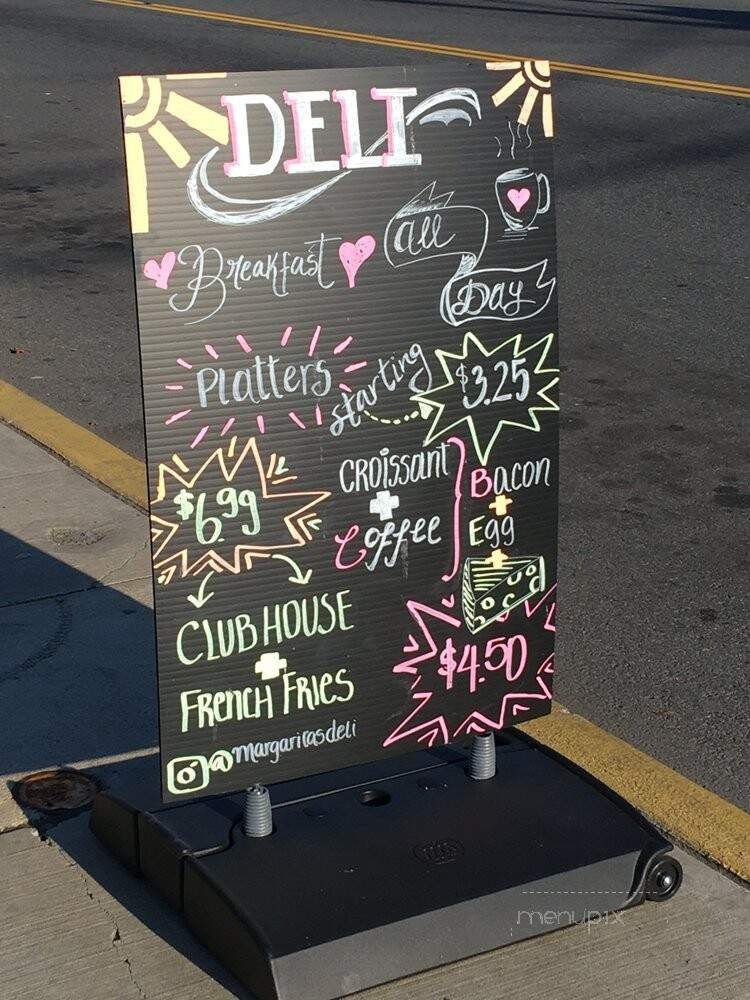 DELI
Breakfast
All
Day
Platters starting $3.25
$6.99
CROissant
+
Coffee
Bacon
+
Egg
+
CLUB HOUSE
+
FRENCH FRiES
$4.50
@margaritasdeli
menupix